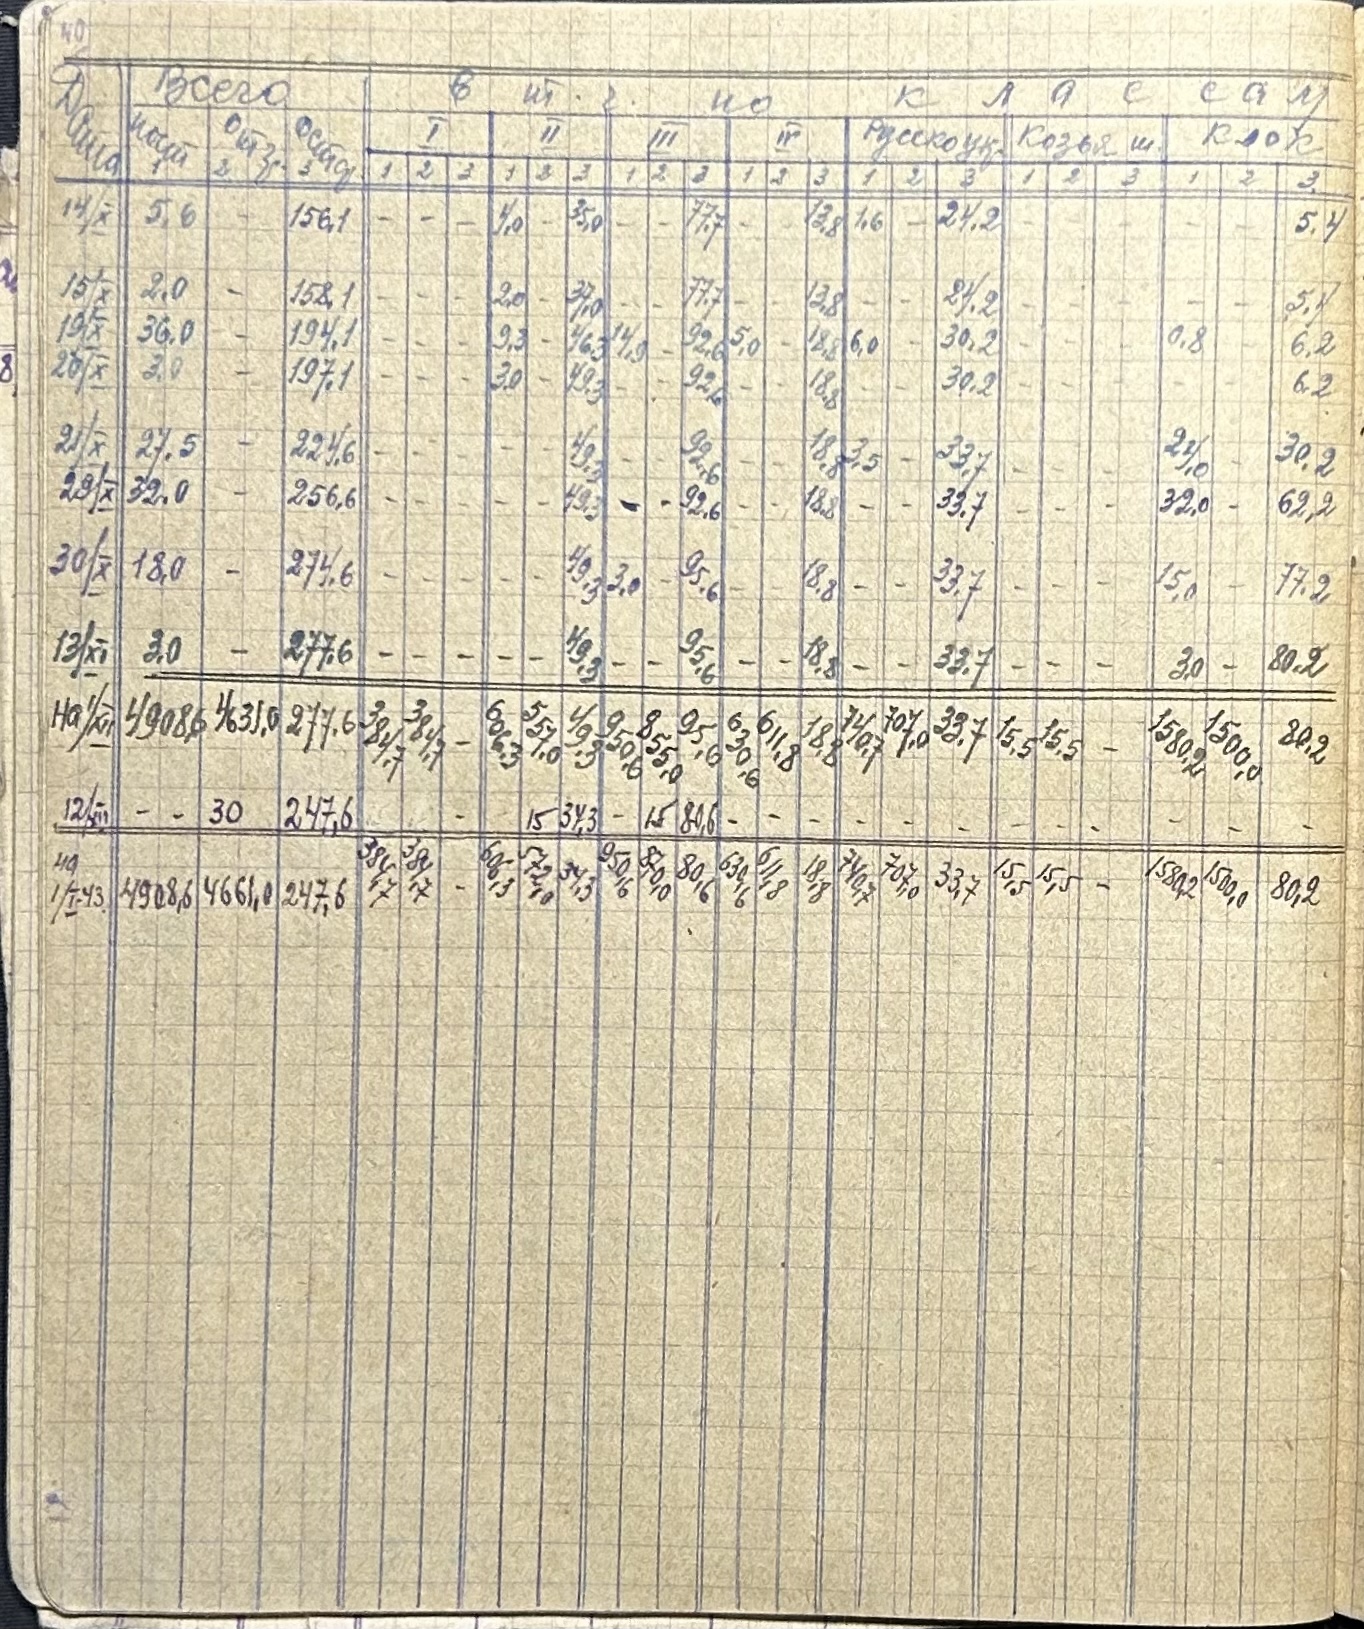 40
Дата Всего в т. ч. по классам
пост отгр. остат. I II III IV Русскоукр. Козья ш. Клок
1 2 3 1 2 3 1 2 3 1 2 3 1 2 3 1 2 3 1 2 3 1 2 3
14/X 5,6 - 156,1 - - - 4,0 - 35,0 - - 77,7 - - 13,8 1,6 - 24,2 - - - - - 5,4
15/X 2,0 - 158,1 - - - 2,0 - 37,0 - - 77,7 - - 13,8 - - 24,2 - - - - - 5,4
19/X 36,0 - 194,1 - - - 9,3 - 46,3 14,9 - 92,6 5,0 - 18,8 6,0 - 30,2 - - - 0,8 - 6,2
20/X 3,0 - 197,1 - - - 3,0 - 49,3 - - 92,6 - - 18,8 - - 30,2 - - - - - 6,2
21/X 27,5 - 224,6 - - - - - 49,3 - - 92,6 - - 18,8 3,5 - 33,7 - - - 24,0 - 30,2
29/X 32,0 - 256,6 - - - - - 49,3 - - 92,6 - - 18,8 - - 33,7 - - - 32,0 - 62,2
30/X 18,0 - 274,6 - - - - - 49,3 3,0 - 95,6 - - 18,8 - - 33,7 - - - 15,0 - 77,2
13/XI 3,0 - 277,6 - - - - - 49,3 - - 95,6 - - 18,8 - - 33,7 - - - 3,0 - 80,2
на 1/XII 4908,6 4631,0 277,6 384,7 384,7 - 606,3 557,0 49,3 950,6 855,0 95,6 630,6 611,8 18,8 740,7 707,0 33,7 15,5 15,5 - 1580,2 1500,0 80,2
12/XII - - 30 247,6 - - 15 34,3 - 15 80,6 - - - - - - - - - - - -
на 1/I-43 4908,6 4661,0 247,6 384,7 384,7 - 606,3 572,0 34,3 950,6 870,0 80,6 630,6 611,8 18,8 740,7 707,0 33,7 15,5 15,5 - 1580,2 1500,0 80,2